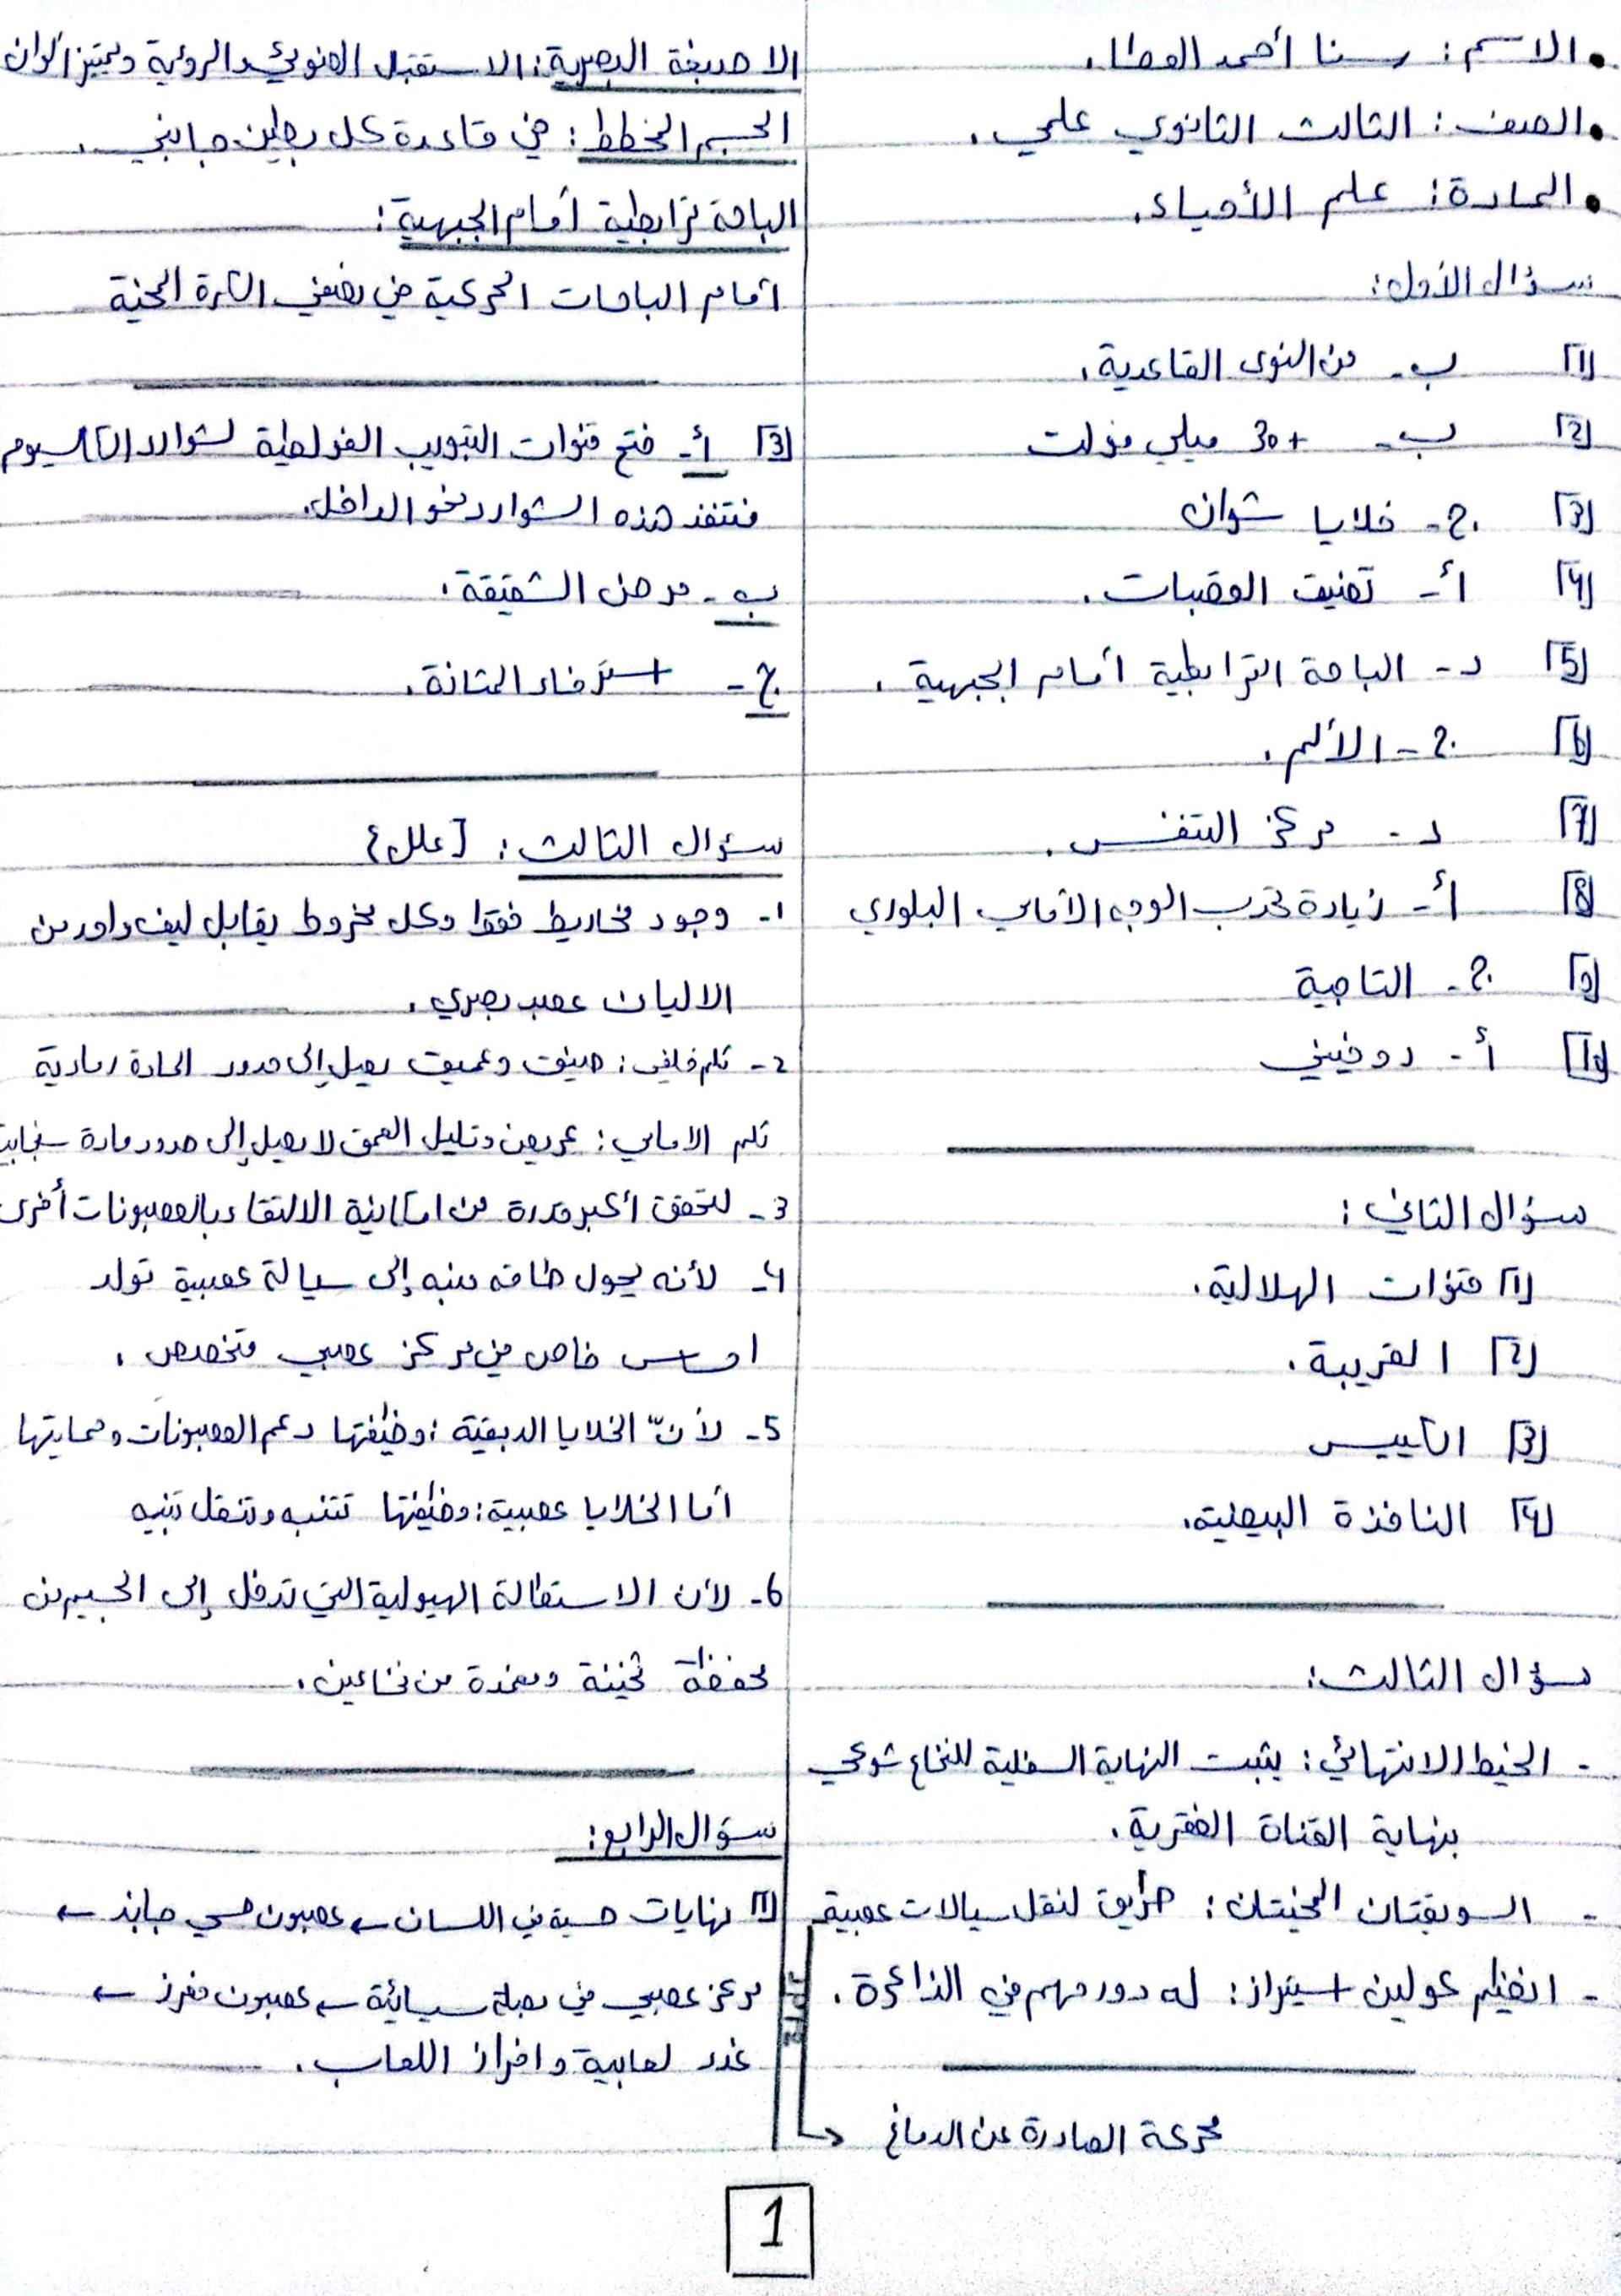 • الاسم : رسنا أحمد العطا.
• الصف : الثالث الثانوي علمي.
• المادة : علم الأحياء.
سؤال الأول :
[1] ب - من النوى القاعدية.
[2] ب - +30 ميلي فولت
[3] ج - خلايا شوان
[4] أ - تضيق القصبات.
[5] د - الباحة الترابطية أمام الجبهية.
[6] ج - الألم.
[7] د - مركز التنفس.
[8] أ - زيادة تحدب الوجه الأمامي البلوري
[9] ج - التاجية
[10] أ - روفيني
سؤال الثاني :
[1] قنوات الهلالية.
[2] القريبة.
[3] الكييس
[4] النافذة البيضية.
سؤال الثالث :
- الخيط الانتهائي : يثبت النهاية السفلية للنخاع شوكي
بنهاية القناة الفقرية.
- السويقتان المخيتان : طريق لنقل سيالات عصبية
محركة الصادرة عن الدماغ
- انظيم كولين استيراز : له دور مهم في الذاكرة.
الاصبغة البصرية : الاستقبال الضوئي والرؤية وتمييز الوان
الجسم المخطط : في قاعدة كل بطين جانبي.
الباحة ترابطية أمام الجبهية :
أمام الباحات الحركية في نصفي الكرة المخية
[3] أ - فتح قنوات التبويب الفولطية لشوارد الكالسيوم
فتنفذ هذه الشوارد نحو الداخل.
ب - مرض الشقيقة.
ج - استرخاء المثانة.
سؤال الثالث : [علل}
1 - وجود مخاريط فقط وكل مخروط يقابل ليف واحد من
الاليان عصب بصري.
2 - ثلم خلفي : ضيق وعميق يصل إلى حدود المادة رمادية
ثلم الامامي : عريض وقليل العمق لا يصل إلى حدود مادة سنجابية
3 - لتحقق أكبر قدرة من امكانية الالتقاء بالعصبونات أخرى
4 - لأنه يحول طاقة منبه إلى سيالة عصبية تولد
احساس خاص في مركز عصبي متخصص.
5 - لأنّ الخلايا الدبقية : وظيفتها دعم العصبونات وحمايتها
أما الخلايا عصبية : وظيفتها تتنبه وتنقل تنبيه
6 - لأن الاستطالة الهيولية التي تدخل إلى الجسيم من
محفظة ثخينة ومغمدة من نخاعين.
سؤال الرابع :
[1] نهايات حسية في اللسان ← عصبون حسي جابذ ←
مركز عصبي في بصلة سيسائية ← عصبون مفرز ←
غدد لعابية وافراز اللعاب.
1